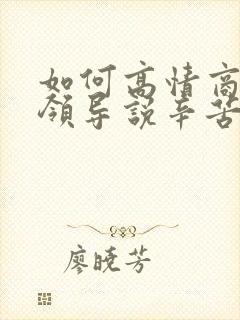 如何高情商
领导说辛苦
廖晓芳